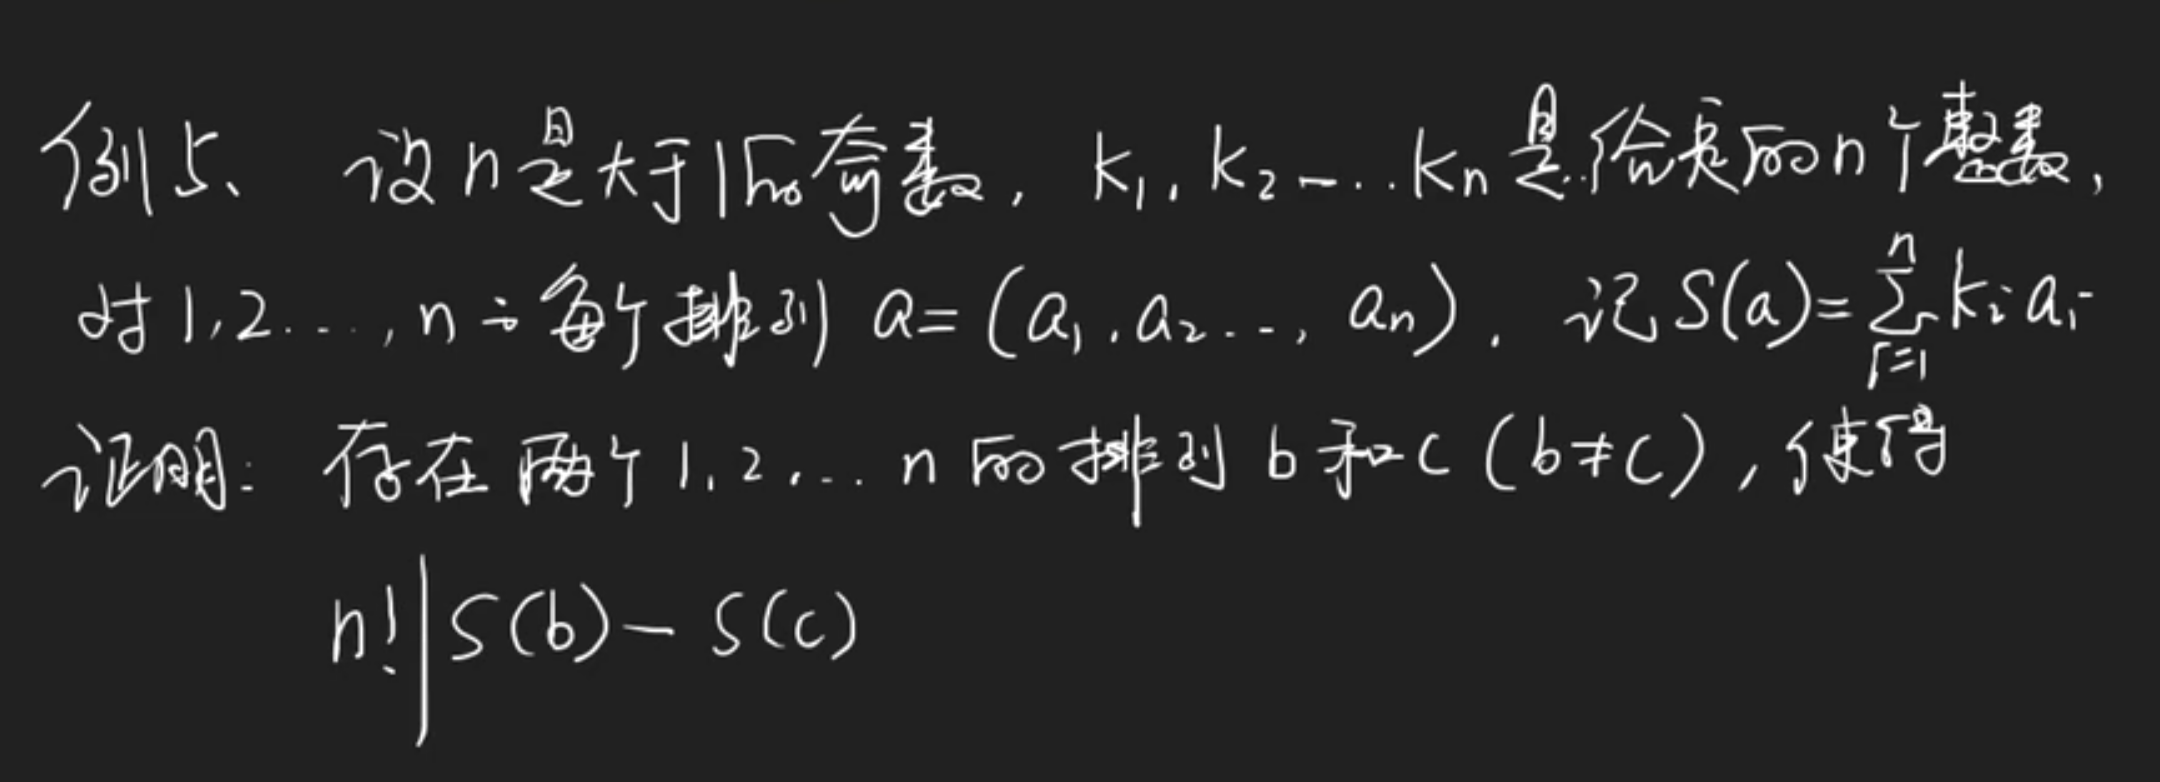 例5、设n是大于1的奇数, k₁, k₂…kₙ是给定的n个整数,
对1,2…,n之每个排列 a=(a₁,a₂…,aₙ), 记S(a)=∑ᵢ₌₁ⁿkᵢaᵢ
证明: 存在两个1,2,…n的排列b和c(b≠c), 使得
n!|S(b)-S(c)